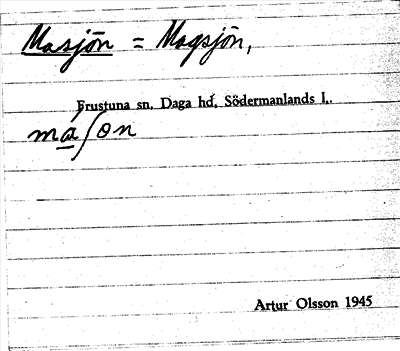 Masjön = Magsjön,
Frustuna sn, Daga hd, Södermanlands l.
må∫on
Artur Olsson 1945